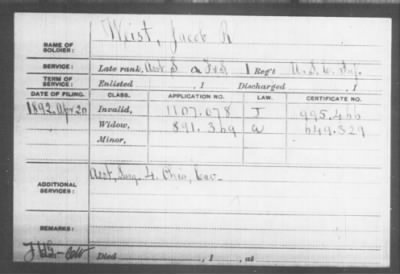 NAME OF SOLDIER: Weist, Jacob R
SERVICE: Late rank, Asst S. 1 Reg't U.S.C. Inf.
TERM OF SERVICE: Enlisted , 1 Discharged , 1
DATE OF FILING. CLASS. APPLICATION NO. LAW. CERTIFICATE NO.
1892 Apr 20 Invalid, 1107.078 J 995.466
Widow, 891.369 W 649.529
Minor,
ADDITIONAL SERVICES: Asst, Surg. 4. Ohio, Cav.
REMARKS:
Died , 1 , at